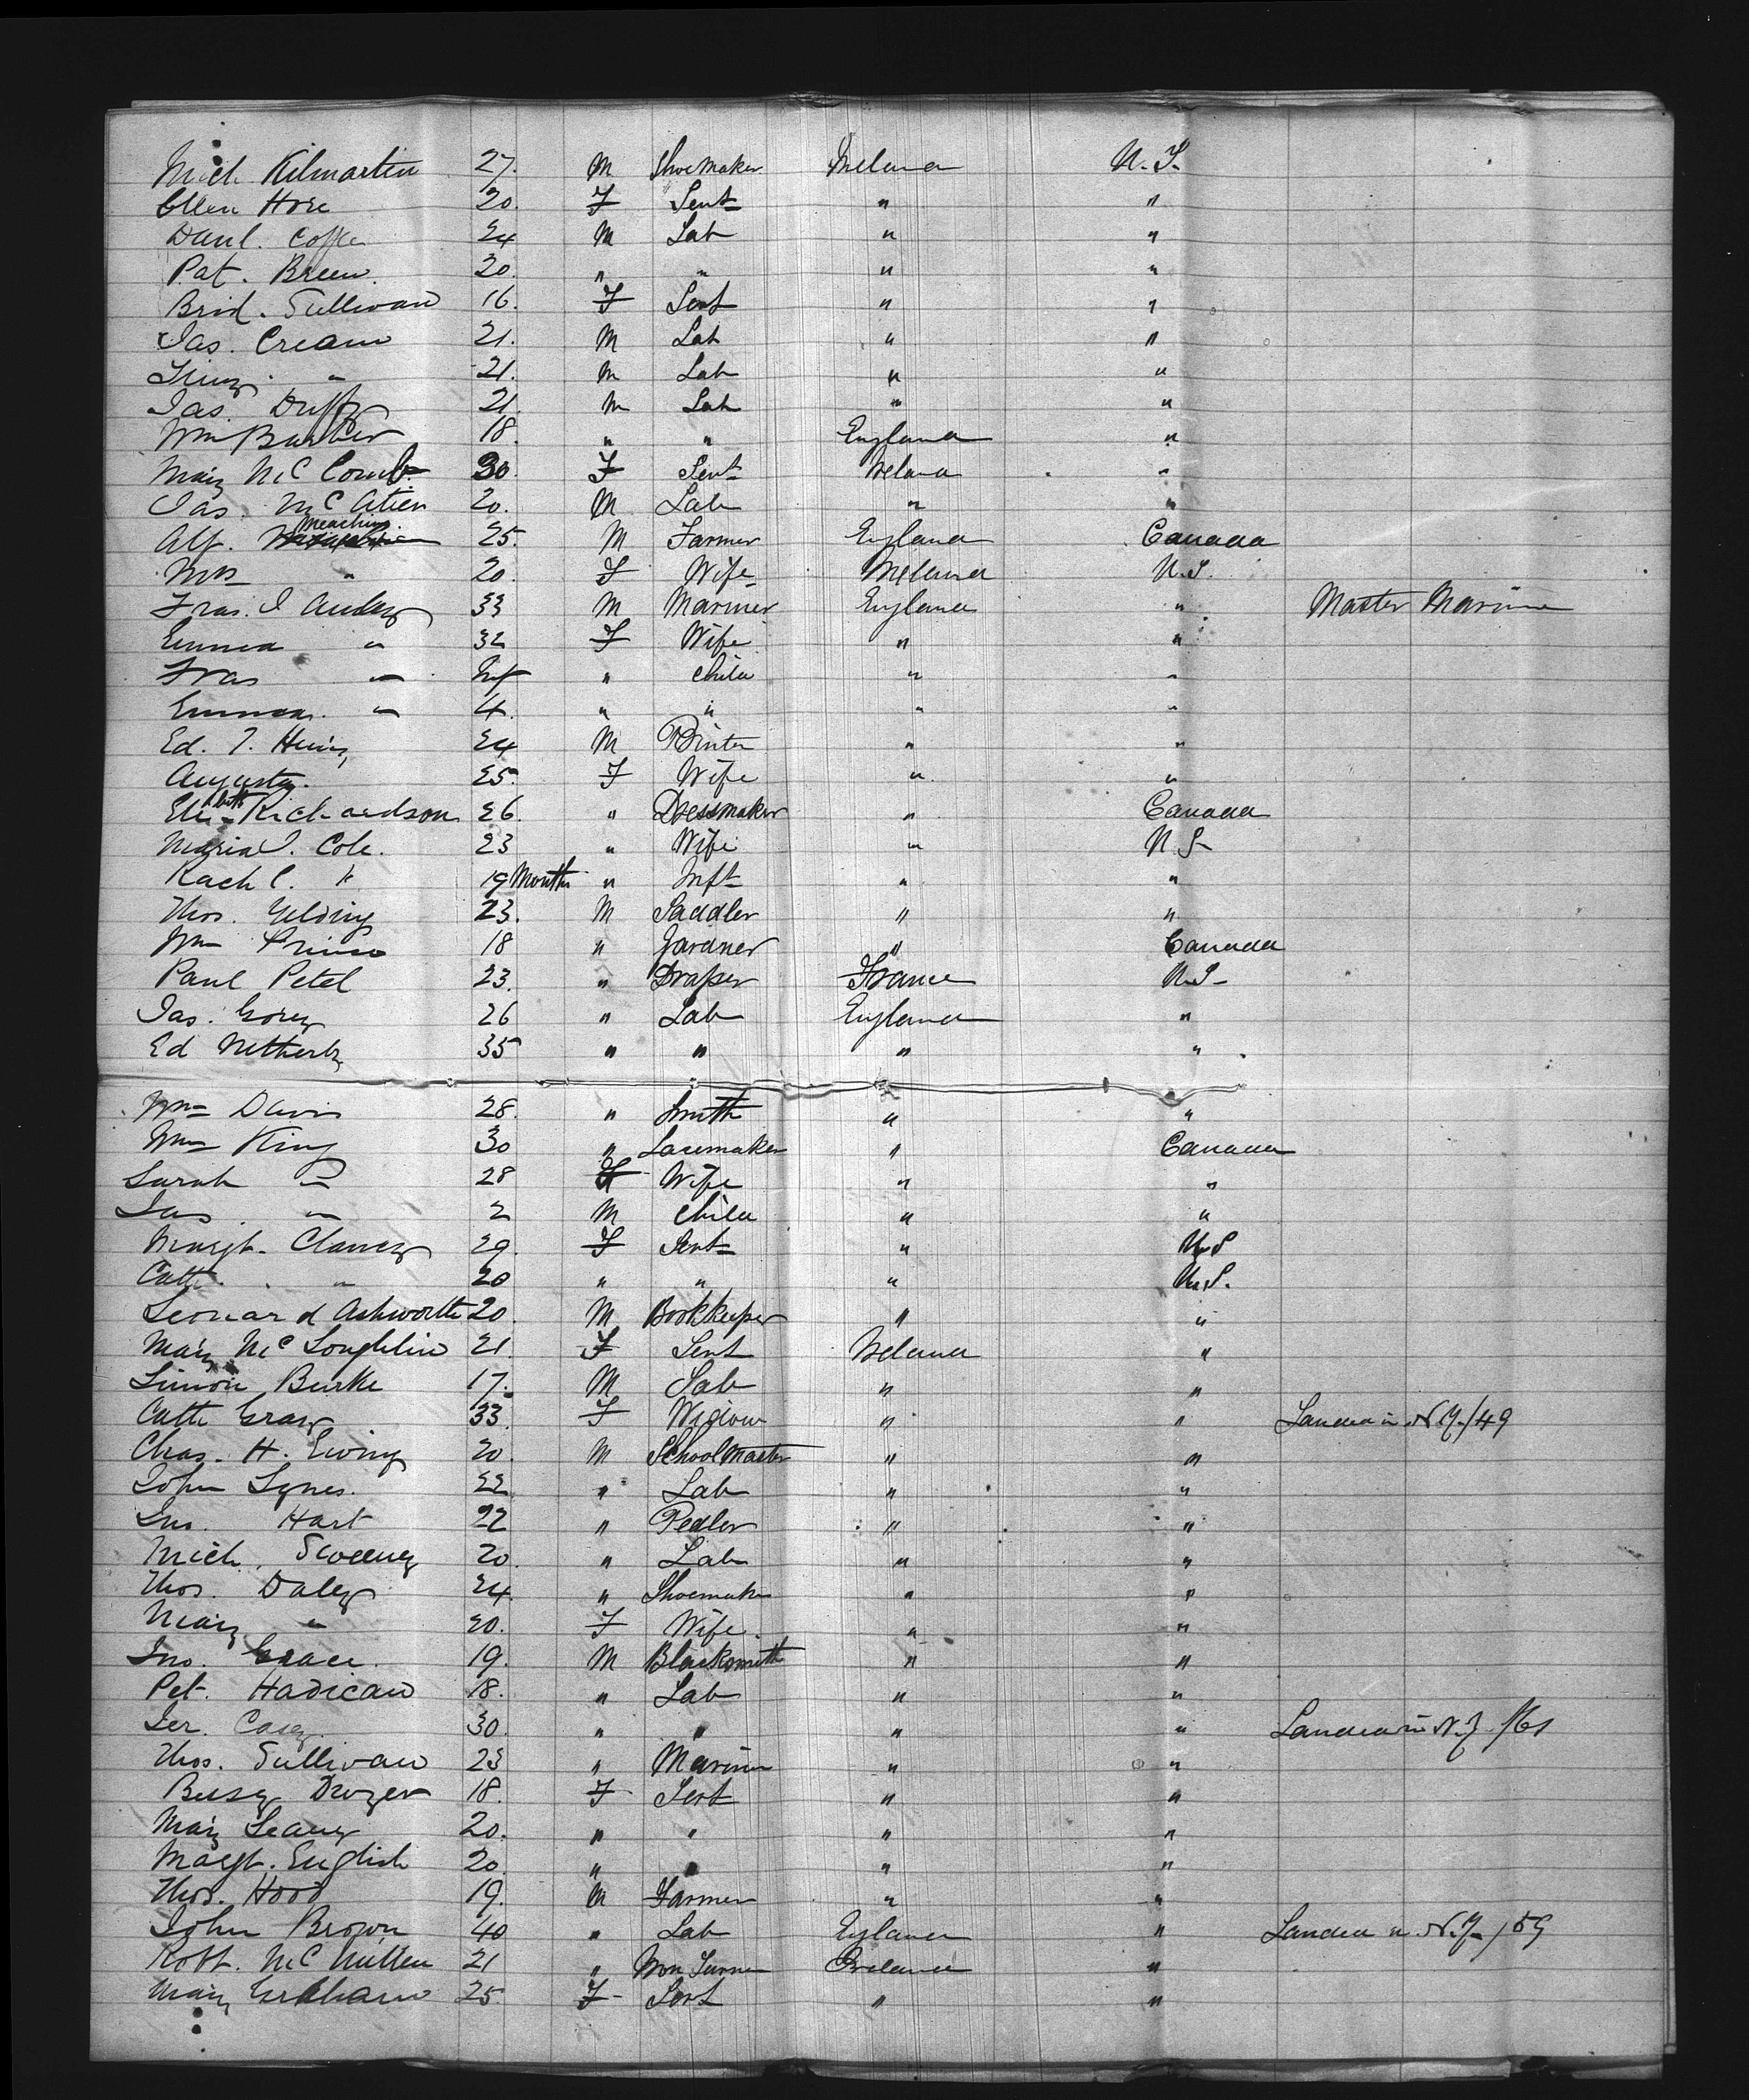 Mich Kilmartin 27. M Shoemaker Ireland U.S.
Ellen Hore 20. F Servt " "
Danl. Coffee 24 M Lab " "
Pat. Breen 20. " " " "
Brid. Sullivan 16. F Servt " "
Jas. Cream 21. M Lab " "
" 21. M Lab " "
Jas. Duffy 21. M Lab " "
Wm Barber 18. " " England "
Mary McComb 30. F Servt Ireland "
Jas. McAteer 20. M Lab " "
Meachins
Alf. 25. M Farmer England Canada
Mrs " 20. F Wife Ireland U.S.
Fras. J. Audley 33 M Mariner England " Master Marine
Emma " 32 F Wife " "
Fras " " Child " "
Emma " 4. " " " "
Ed. T. 24 M Printer " "
Augusta. 25. F Wife " "
Elizabeth Richardson 26. " Dressmaker " Canada
Maria J. Cole. 23 " Wife " U.S.
Rachl. " 19 Months " Inft " "
Thos. Gelding 23. M Saddler " "
Wm Prince 18 " Gardner " Canada
Paul Petel 23. " Draper France U.S.
Jas. Gorey 26 " Lab England "
Ed 35 " " " "
Wm Davis 28. " Smith " "
Wm King 30 " Lacemaker " Canada
Sarah " 28 F Wife " "
Jas " 2 M Child " "
Margt. Clancy 29. F Servt " U.S
Cath. " 20 " " " U.S.
Leonard Ashworth 20. M Bookkeeper " "
Mary McLoughlin 21. F Servt Ireland "
Simon Burke 17. M Lab " "
Cath Gray 33. F Widow " " Landed in N.Y. /49
Chas. H. Ewing 20. M Schoolmaster " "
John Lynes. 22 " Lab " "
Jno. Hart 22 " Pedler " "
Mich. Sweeney 20. " Lab " "
Thos. Daley 24. " Shoemaker " "
Mary " 20. F Wife. " "
Jno. Grace. 19. M Blacksmith " "
Pat. Hadican 18. " Lab " "
Jer. Casey 30. " " " " Landed in N.Y. /61
Thos. Sullivan 23 " Mariner " "
Dwyer 18. F Servt " "
Mary Leary 20. " " " "
Margt. English 20. " " " "
Thos. Hood 19. M Farmer " "
John Brown 40 " Lab England " Landed in N.Y. /59
Robt. McMillen 21 " Iron Turner Ireland "
Mary Graham 25. F Servt " "